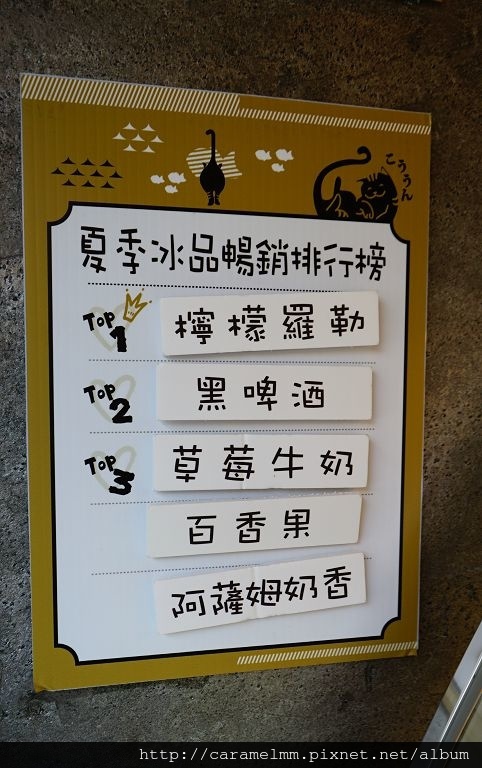 こううん
夏季冰品暢銷排行榜
TOP 1 檸檬羅勒
TOP 2 黑啤酒
TOP 3 草莓牛奶
百香果
阿薩姆奶香
http://caramelmm.pixnet.net/album